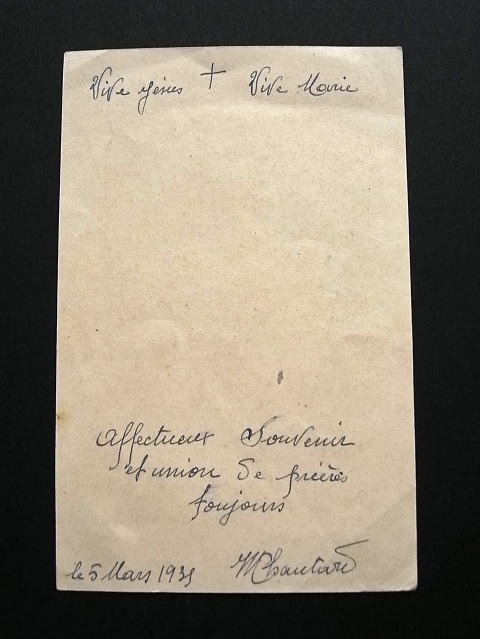 Vive Jésus + Vive Marie
Affectueux Souvenir
et union de prières
toujours
le 5 Mars 1935 MChautard